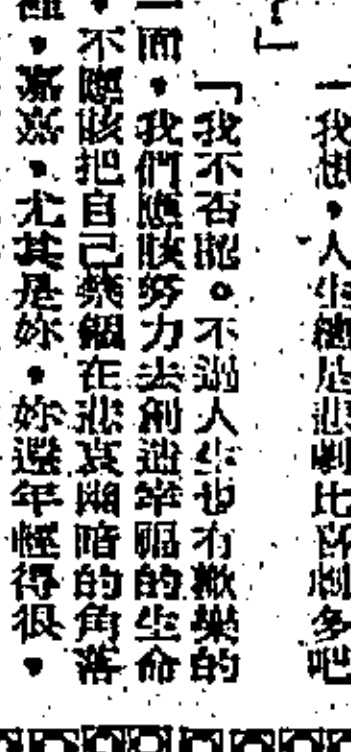 ？」
「我想，人生總是悲劇比喜劇多吧
「我不否認。不過人生也有歡樂的
一面，我們應該努力去創造幸福的生命
，不應該把自己禁錮在悲哀幽暗的角落
，嘉嘉，尤其是妳，妳還年輕得很，